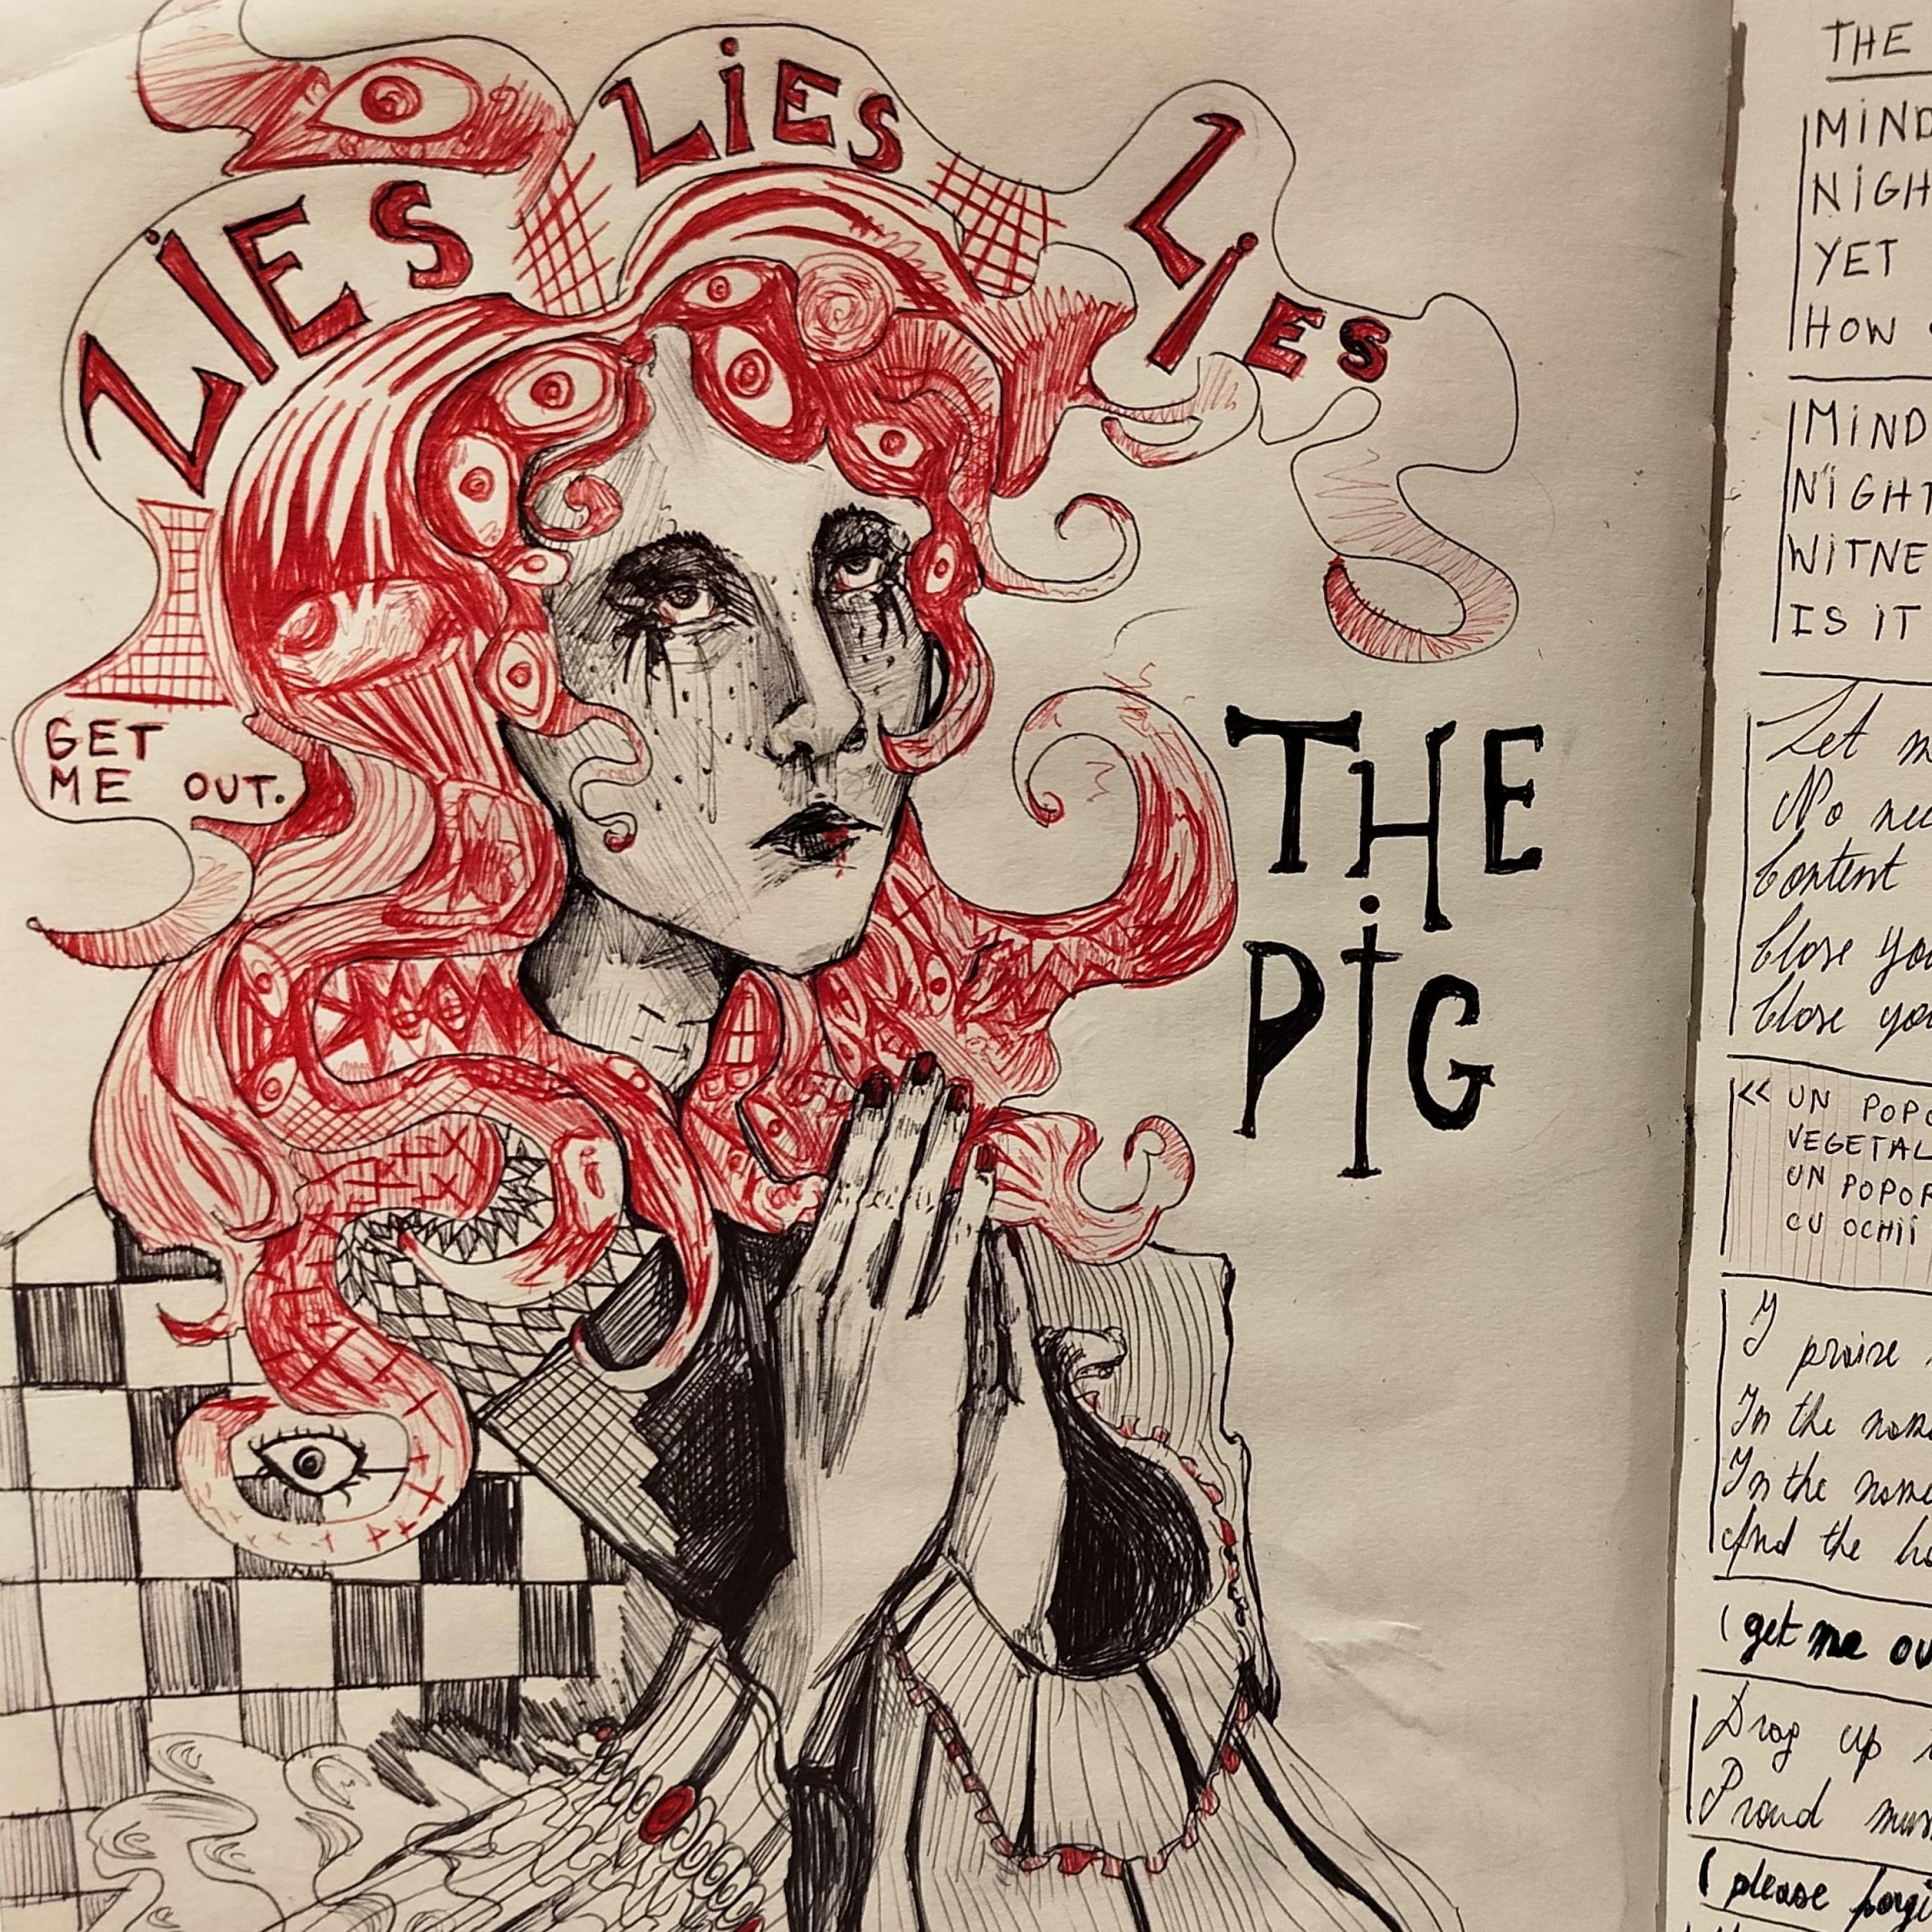 LiES
LiES
LiES
GET
ME OUT.
THE
PiG
THE
MiND
NiGH
YET
HOW
MiND
NiGHT
WiTNE
iS iT
Let m
No nee
Content
Close you
Close you
<< UN POPO
VEGETAL
UN POPOR
CU OCHii
I praise
In the name
In the name
And the ho
(get me ou
Drag up
Proud mur
(please forgi